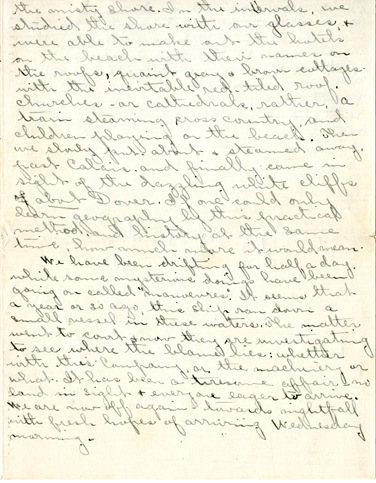 the misty shore. In the intervals, we
studied the shore with our glasses, &
were able to make out the hotels
on the beach with their names on
the roofs, quaint gray & brown cottages
with the inevitable red-tiled roof.
Churches - or cathedrals, rather, a
train steaming cross country, and
children playing on the beach. Then
we slowly put about & steamed away,
past Calais, and finally came in
sight of the dazzling white cliffs
of about Dover. If one could only
learn geography by this practical
method, and history at the same
time, how much more it would mean.
We have been drifting for half a day
while some mysterious doings have been
going on called "maneuvres". It seems that
a year or so ago, this ship ran down a
small vessel in these waters. The matter
went to court & now they are investigating
to see where the blame lies: whether
with this Company, or the machinery or
what. It has been a tiresome affair - no
land in sight & everyone eager to arrive.
We are now off again towards nightfall
with fresh hopes of arriving Wednesday
morning.